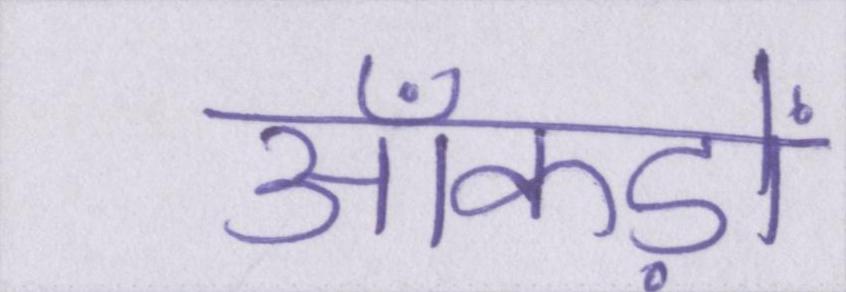 आँकड़ों